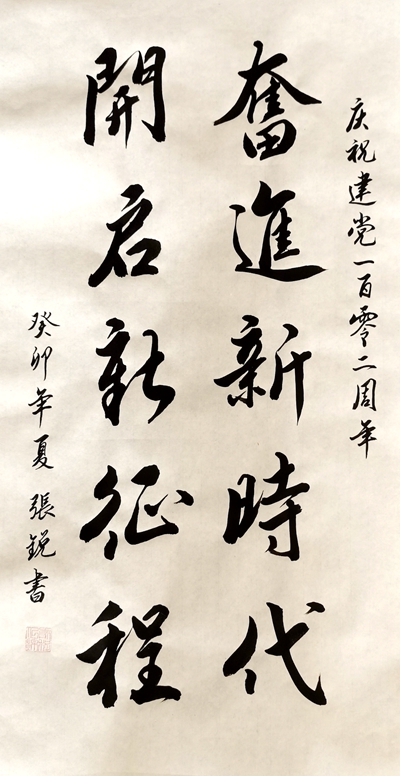 庆祝建党一百零二周年
奮進新時代
開启新征程
癸卯年夏 張銳書